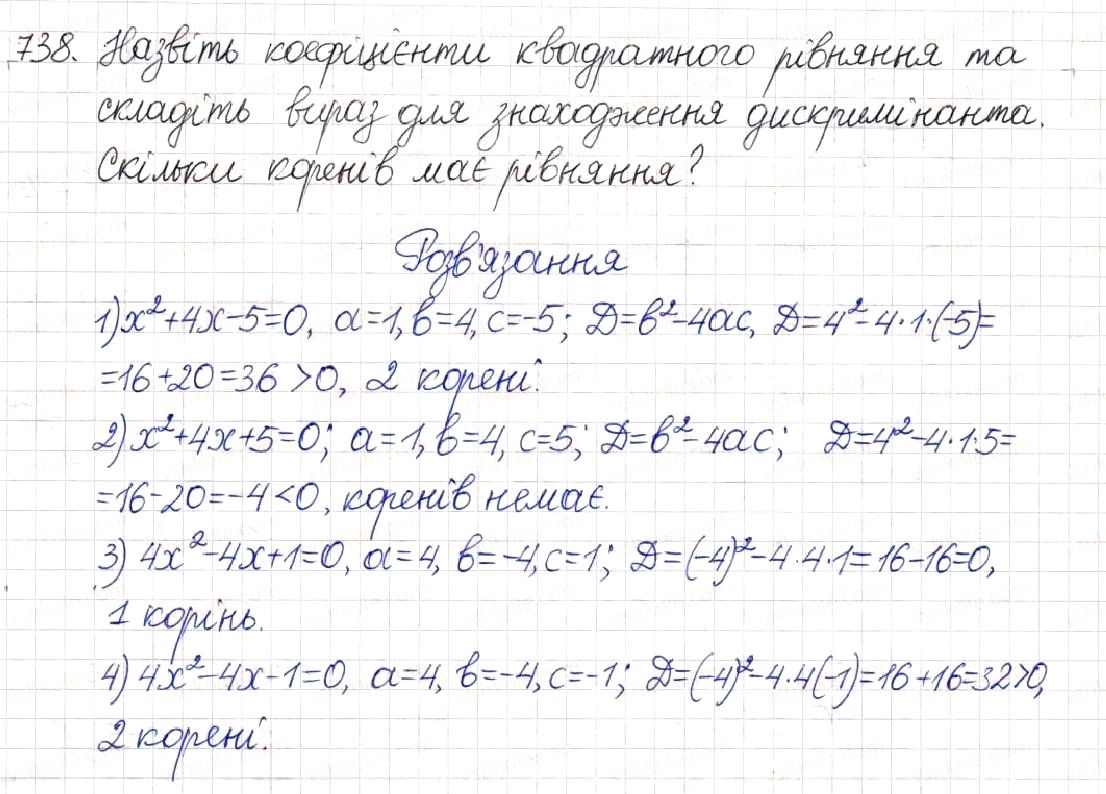 738. Назвіть коефіцієнти квадратного рівняння та
складіть вираз для знаходження дискримінанта.
Скільки коренів має рівняння?
Розв'язання
1) x²+4x-5=0, a=1, b=4, c=-5; Д=b²-4ac, Д=4²-4·1·(-5)=
=16+20=36>0, 2 корені.
2) x²+4x+5=0; a=1, b=4, c=5; Д=b²-4ac; Д=4²-4·1·5=
=16-20=-4<0, коренів немає.
3) 4x²-4x+1=0, a=4, b=-4, c=1; Д=(-4)²-4·4·1=16-16=0,
1 корінь.
4) 4x²-4x-1=0, a=4, b=-4, c=-1; Д=(-4)²-4·4(-1)=16+16=32>0,
2 корені.